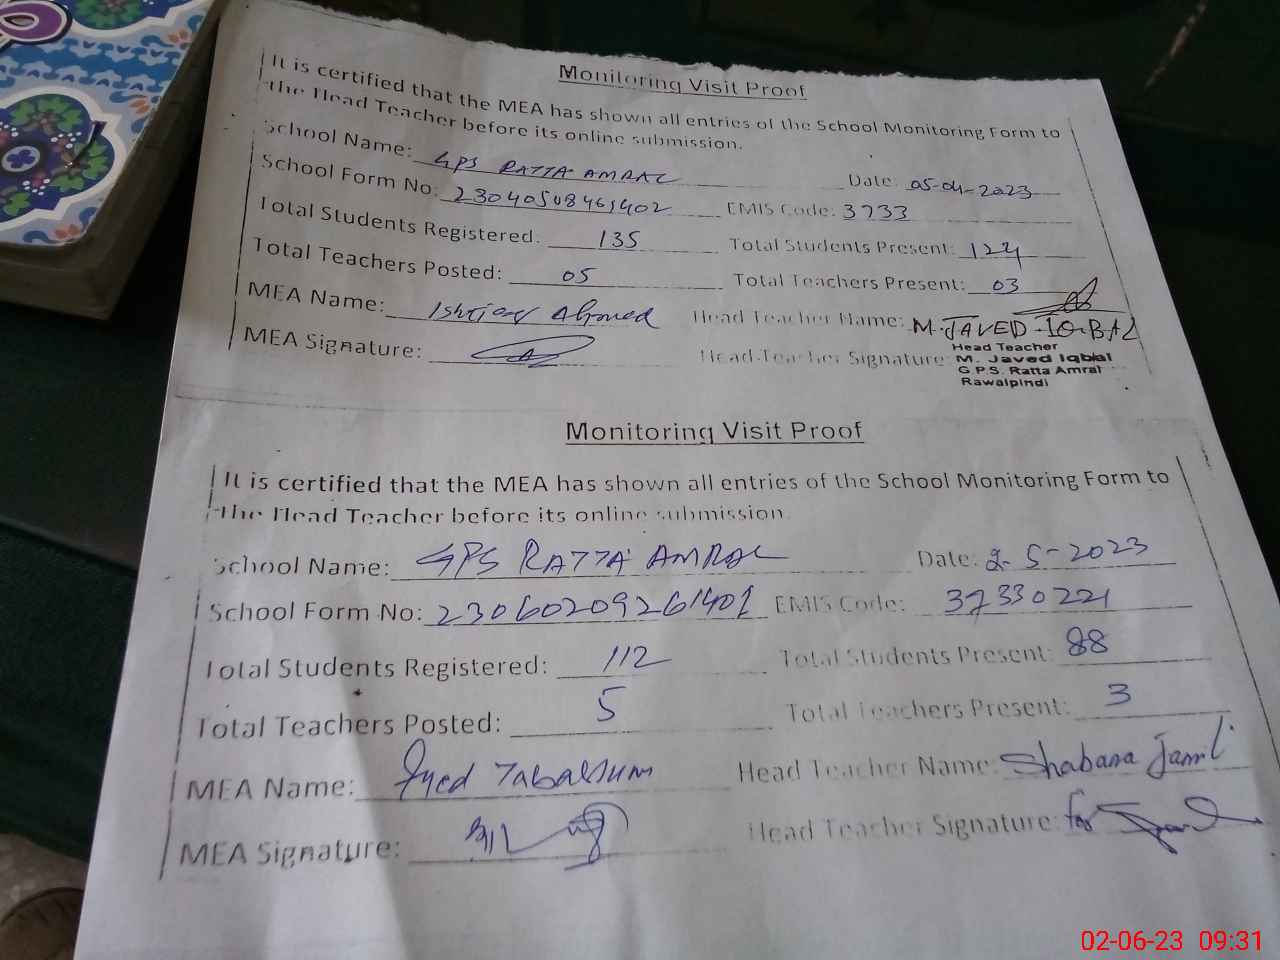 Monitoring Visit Proof
It is certified that the MEA has shown all entries of the School Monitoring Form to
the Head Teacher before its online submission.
School Name: GPS RATTA AMRAL Date: 05-04-2023
School Form No: EMIS Code: 3733
Total Students Registered: 135 Total Students Present: 124
Total Teachers Posted: 05 Total Teachers Present: 03
MEA Name: Ishtiaq Ahmed Head Teacher Name: M. JAVED IQBAL
MEA Signature: Head Teacher Signature:
Head Teacher
M. Javed Iqbal
G.P.S. Ratta Amral
Rawalpindi
Monitoring Visit Proof
It is certified that the MEA has shown all entries of the School Monitoring Form to
the Head Teacher before its online submission.
School Name: GPS RATTA AMRAL Date: 2-5-2023
School Form No: 23060209261401 EMIS Code: 37330221
Total Students Registered: 112 Total Students Present: 88
Total Teachers Posted: 5 Total Teachers Present: 3
MEA Name: Syed Tabassum Head Teacher Name: Shabana Jamil
MEA Signature: Head Teacher Signature: for
02-06-23 09:31